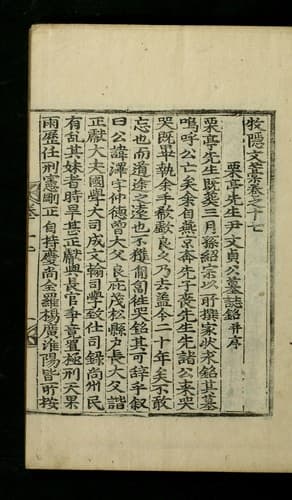 牧隱文藁卷之十七
栗亭先生尹文貞公墓誌銘 幷序
栗亭先生旣葬三月孫紹宗以所撰家狀求銘其墓
嗚呼公亡矣余自燕京奔先子喪先生先諸公來哭
哭旣畢執余手欷歔良久乃去盖今二十年矣不敢
忘也而道途之遠也不獲匍匐徃哭銘其可辞乎叙
曰公諱澤字仲德曾大父良庇茂松縣戶長大父諧
正獻大夫國學大司成文翰司學致仕司錄尙州民
有乱其妹者時旱甚正獻與長官爭竟置極刑天果
雨歷任刑憲剛正自持慶尙全羅楊廣淮陽皆所按